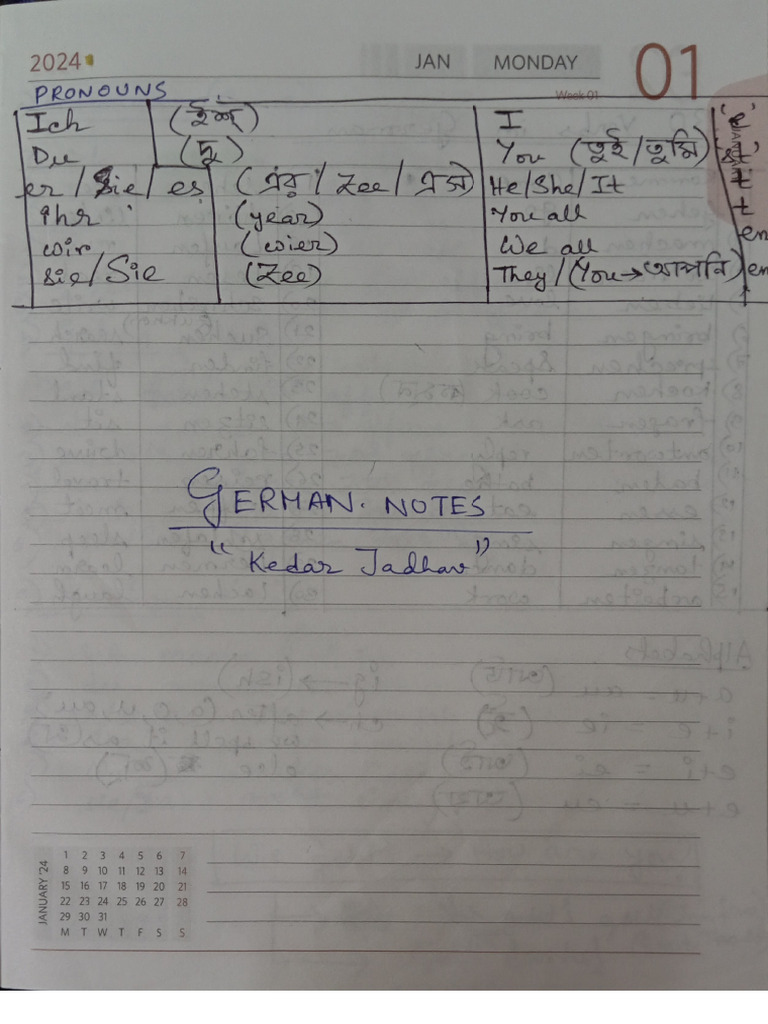 2024 JAN MONDAY 01
Week 01
PRONOUNS
Ich (ইশ্) I 'e'
Du (দু) You (তুই/তুমি) 'st'
er/Sie/es (এর্/Zee/এস) He/She/It t
ihr (year) You all t
wir (wier) We all en
sie/Sie (Zee) They/(You→আপনি) en
GERMAN. NOTES
"Kedar Jadhav"
JANUARY '24
1 2 3 4 5 6 7
8 9 10 11 12 13 14
15 16 17 18 19 20 21
22 23 24 25 26 27 28
29 30 31
M T W T F S S